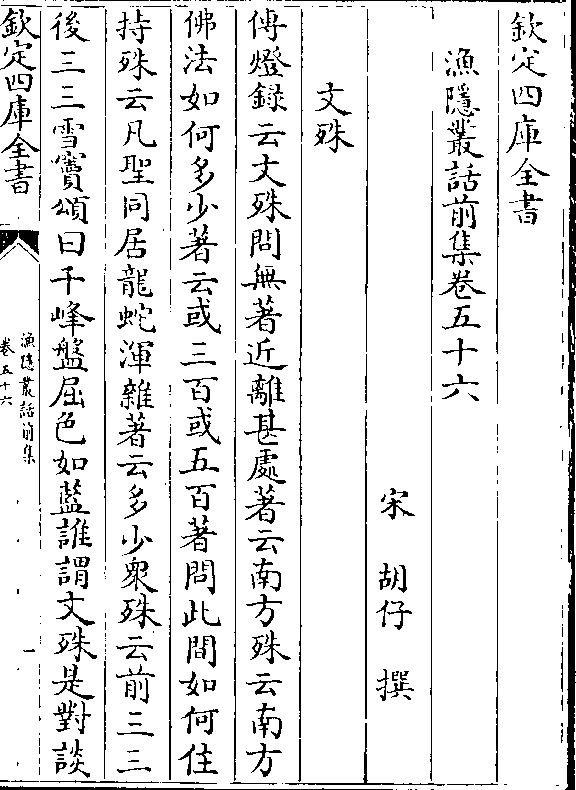 欽定四庫全書
漁隱叢話前集卷五十六
宋 胡仔 撰
文殊
傳燈録云文殊問無著近離甚處著云南方殊云南方
佛法如何多少著云或三百或五百著問此間如何住
持殊云凡聖同居龍蛇渾雜著云多少衆殊云前三三
後三三雪竇頌曰千峰盤屈色如藍誰謂文殊是對談
欽定四庫全書
漁隱叢話前集
卷五十六
一